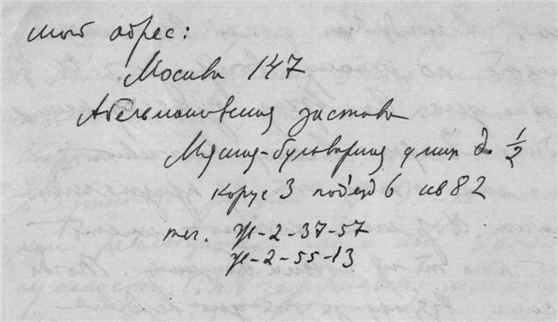 мой адрес:
Москва 147
Абельмановская застава
Мясная-бульварная улиц д. 1/2
корус 3 подъезд 6 кв 82
тел. Ж-2-37-57
Ж-2-55-13